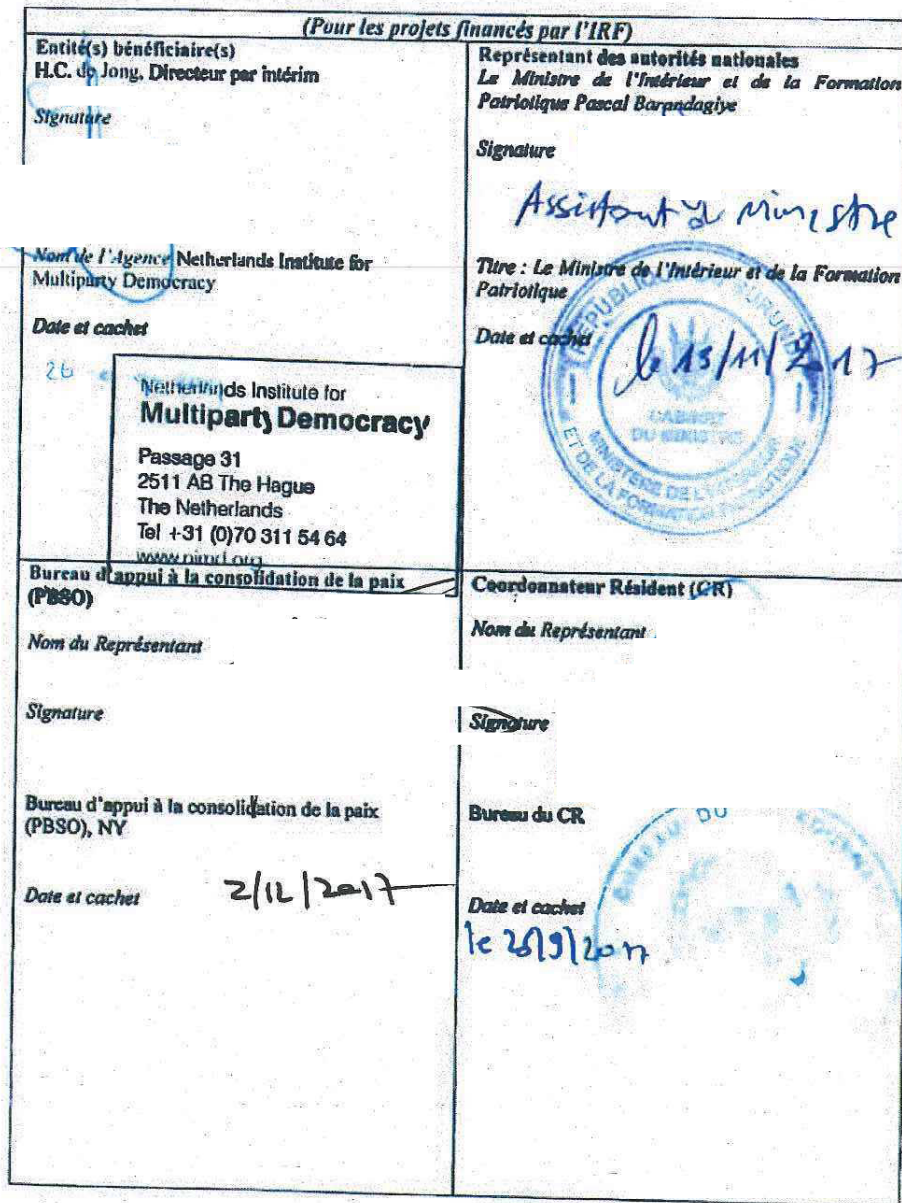 (Pour les projets financés par l'IRF)
Entité(s) bénéficiaire(s)
H.C. de Jong, Directeur par intérim
Signature
Nom de l'Agence Netherlands Institute for
Multiparty Democracy
Date et cachet
26
Netherlands Institute for
Multiparty Democracy
Passage 31
2511 AB The Hague
The Netherlands
Tel +31 (0)70 311 54 64
www.nimd.org
Représentant des autorités nationales
Le Ministre de l'Intérieur et de la Formation
Patriotique Pascal Barandagiye
Signature
Assistant du Ministre
Titre : Le Ministre de l'Intérieur et de la Formation
Patriotique
Date et cachet
le 13/11/2017
REPUBLIQUE DU BURUNDI
CABINET
DU MINISTRE
MINISTERE DE L'INTERIEUR
ET DE LA FORMATION PATRIOTIQUE
Bureau d'appui à la consolidation de la paix
(PBSO)
Nom du Représentant
Signature
Bureau d'appui à la consolidation de la paix
(PBSO), NY
Date et cachet 2/12/2017
Coordonnateur Résident (CR)
Nom du Représentant
Signature
Bureau du CR
BUREAU DU
Date et cachet
le 25/9/2017